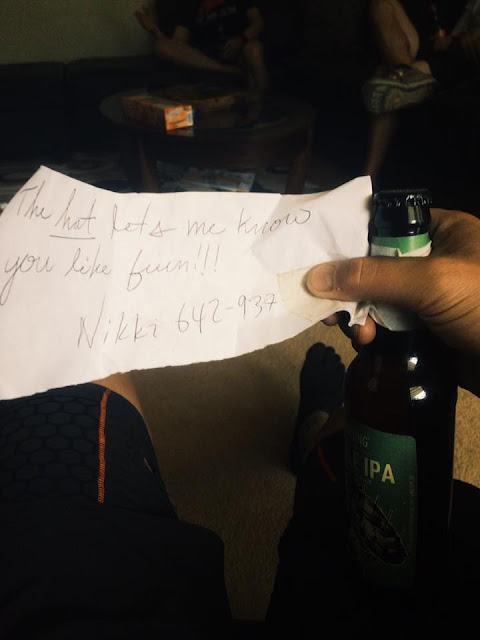 The hat lets me know
you like fun!!!
Nikki 642-937
IPA